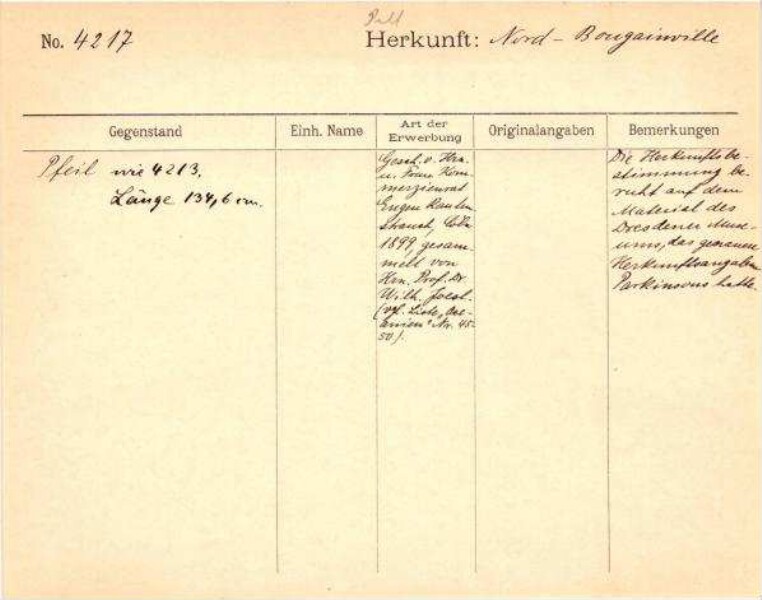 No. 4217
Herkunft: Nord - Bougainville
Gegenstand
Einh. Name
Art der
Erwerbung
Originalangaben
Bemerkungen
Pfeil wie 4213.
Länge 134,6 cm.
Gesch. v. Hrn.
u. Frau Kom-
merzienrat
Eugen Rauten-
strauch, Cöln
1899, gesam-
melt von
Hrn. Prof. Dr
Wilh. Joest.
(vgl. Liste "Oze-
anien" Nr. 45-
50).
Die Herkunftsbe-
stimmung be-
ruht auf dem
Material des
Dresdener Muse-
ums, das genauere
Herkunftsangaben
Parkinsons hatte.